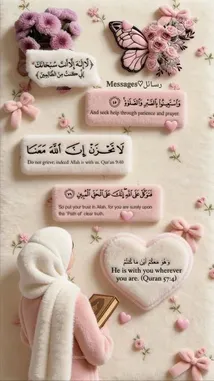 ﴿لَا إِلَٰهَ إِلَّا أَنتَ سُبْحَانَكَ
إِنِّي كُنتُ مِنَ الظَّالِمِينَ﴾
Messages♡رسائل
وَاسْتَعِينُوا بِالصَّبْرِ وَالصَّلَاةِ
And seek help through patience and prayer
لَا تَحْزَنْ إِنَّ اللَّهَ مَعَنَا
Do not grieve; indeed Allah is with us. Quran 9:40
فَتَوَكَّلْ عَلَى اللَّهِ إِنَّكَ عَلَى الْحَقِّ الْمُبِينِ
So put your trust in Allah, for you are surely upon
the 'Path of' clear truth.
وَهُوَ مَعَكُمْ أَيْنَ مَا كُنتُمْ
He is with you wherever
you are. (Quran 57:4)